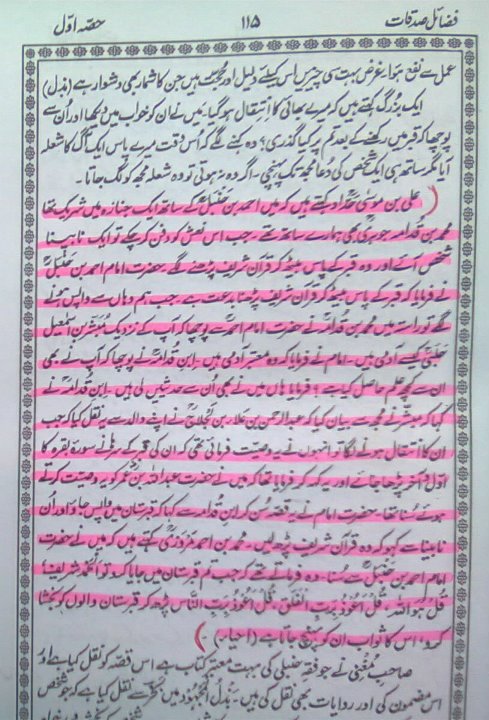 فضائل صدقات ۱۱۵ حصہ اوّل
عمل سے نفع ہوا، غرض بہت سی چیزیں اس کیلئے دلیل اور حجت ہیں جن کا شمار بھی دشوار ہے (بذل)
ایک بزرگ کہتے ہیں کہ میرے بھائی کا انتقال ہوگیا۔ میں نے ان کو خواب میں دیکھا اور اُن سے
پوچھا کہ قبر میں رکھنے کے بعد تم پر کیا گذری؟ وہ کہنے لگے کہ اُس وقت میرے پاس ایک آگ کا شعلہ
آیا مگر ساتھ ہی ایک شخص کی دُعا مجھ تک پہنچی۔ اگر وہ نہ ہوتی تو وہ شعلہ مجھ کو لگ جاتا۔
(علی بن موسیٰ حدّاد کہتے ہیں کہ میں احمد بن حنبلؒ کے ساتھ ایک جنازہ میں شریک تھا
محمد بن قدامہ جوہریؒ بھی ہمارے ساتھ تھے۔ جب اس نعش کو دفن کر چکے تو ایک نابینا
شخص آئے اور وہ قبر کے پاس بیٹھ کر قرآن شریف پڑھنے لگے۔ حضرت امام احمد بن حنبلؒ
نے فرمایا کہ قبر کے پاس بیٹھ کر قرآن شریف پڑھنا بدعت ہے۔ جب ہم وہاں سے واپس ہونے
لگے تو راستہ میں محمد بن قدامہؒ نے حضرت امام احمدؒ سے پوچھا کہ آپ کے نزدیک مبشر بن اسمٰعیل
حلبیؒ کیسے آدمی ہیں۔ امام نے فرمایا کہ وہ معتبر آدمی ہیں۔ ابن قدامہؒ نے پوچھا کہ آپ نے بھی
ان سے کچھ علم حاصل کیا ہے؟ فرمایا ہاں میں نے بھی اُن سے حدیثیں لی ہیں۔ ابن قدامہؒ نے
کہا کہ مبشر نے مجھ سے بیان کیا کہ عبد الرحمن بن علاء بن لجلاجؒ نے اپنے والد سے یہ نقل کیا کہ جب
ان کا انتقال ہونے لگا تو انہوں نے یہ وصیت فرمائی تھی کہ ان کی قبر کے سرہانے سورۂ بقرہ کا
اوّل و آخر پڑھا جائے اور یہ کہہ کر فرمایا تھا کہ میں نے حضرت عبد اللہ بن عمرؓ کو یہ وصیت کرتے
ہوئے سُنا تھا۔ حضرت امام نے یہ قصہ سُن کر ابنِ قدامہ سے کہا کہ قبرستان میں واپس جاؤ اور اُن
نابینا سے کہو کہ وہ قرآن شریف پڑھ لیں۔ محمد بن احمد مروزیؒ کہتے ہیں کہ میں نے حضرت
امام احمد بن حنبلؒ سے سُنا۔ وہ فرماتے تھے کہ جب تم قبرستان میں جایا کرو تو الحمد شریف اور
قُل ہو اللہ، قُلْ اَعُوْذُ بِرَبِّ الْفَلَقِ، قُلْ اَعُوْذُ بِرَبِّ النَّاسِ پڑھ کر قبرستان والوں کو بخشا
کرو۔ اس کا ثواب ان کو پہنچ جاتا ہے (احیاء)۔)
صاحب مُغنیؒ نے جو فقہ حنبلی کی بہت معتبر کتاب ہے اس قصّہ کو نقل کیا ہے اور
اس مضمون کی اور روایات بھی نقل کی ہیں۔ بذل المجہود میں بحر سے نقل کیا ہے کہ جو شخص